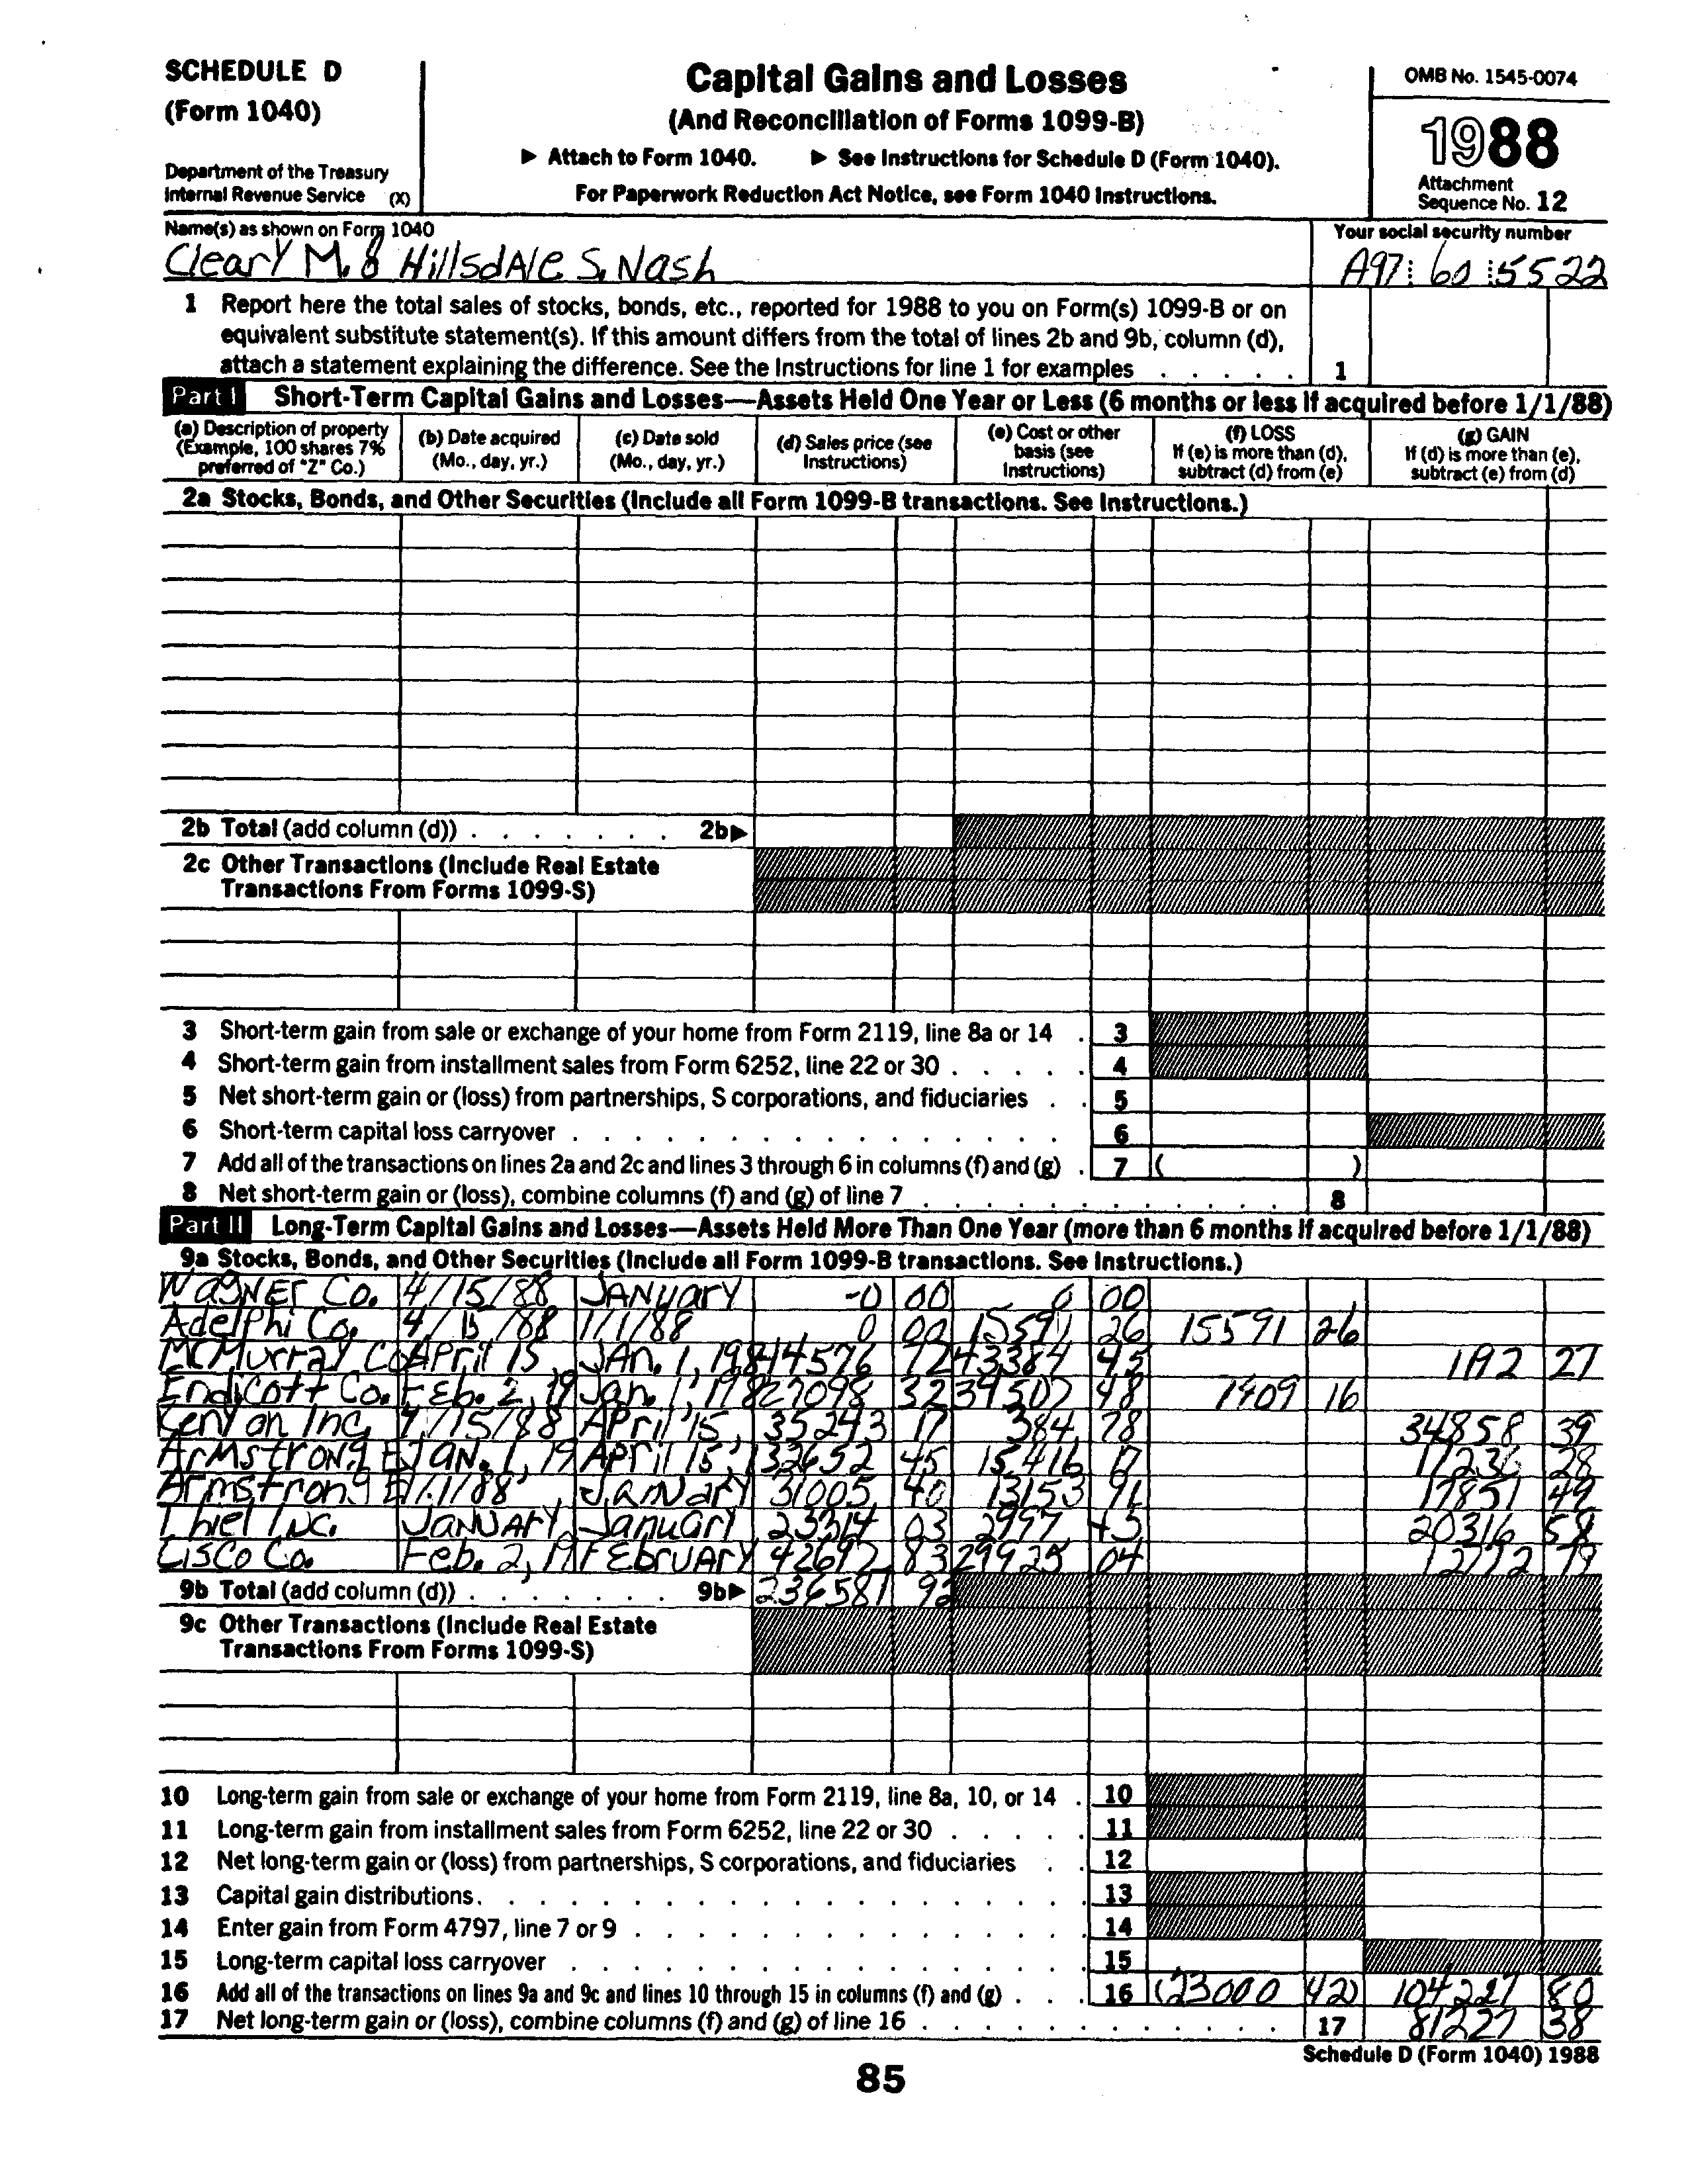 SCHEDULE D
(Form 1040)
Department of the Treasury
Internal Revenue Service (X)
Capital Gains and Losses
(And Reconciliation of Forms 1099-B)
▶ Attach to Form 1040. ▶ See Instructions for Schedule D (Form 1040).
For Paperwork Reduction Act Notice, see Form 1040 Instructions.
OMB No. 1545-0074
1988
Attachment
Sequence No. 12
Name(s) as shown on Form 1040
Cleary M. & HillsdAle S. Nash
Your social security number
A97 60 5522
1 Report here the total sales of stocks, bonds, etc., reported for 1988 to you on Form(s) 1099-B or on
equivalent substitute statement(s). If this amount differs from the total of lines 2b and 9b, column (d),
attach a statement explaining the difference. See the Instructions for line 1 for examples . . . . . 1
Part I Short-Term Capital Gains and Losses—Assets Held One Year or Less (6 months or less if acquired before 1/1/88)
(a) Description of property (Example, 100 shares 7% preferred of "Z" Co.)
(b) Date acquired (Mo., day, yr.)
(c) Date sold (Mo., day, yr.)
(d) Sales price (see Instructions)
(e) Cost or other basis (see Instructions)
(f) LOSS If (e) is more than (d), subtract (d) from (e)
(g) GAIN If (d) is more than (e), subtract (e) from (d)
2a Stocks, Bonds, and Other Securities (Include all Form 1099-B transactions. See Instructions.)
2b Total (add column (d)) . . . . . . . 2b▶
2c Other Transactions (Include Real Estate
Transactions From Forms 1099-S)
3 Short-term gain from sale or exchange of your home from Form 2119, line 8a or 14 . 3
4 Short-term gain from installment sales from Form 6252, line 22 or 30 . . . . . 4
5 Net short-term gain or (loss) from partnerships, S corporations, and fiduciaries . . 5
6 Short-term capital loss carryover . . . . . . . . . . . . . . . 6
7 Add all of the transactions on lines 2a and 2c and lines 3 through 6 in columns (f) and (g) . 7 ( )
8 Net short-term gain or (loss), combine columns (f) and (g) of line 7 . . . . . . . . . . . . 8
Part II Long-Term Capital Gains and Losses—Assets Held More Than One Year (more than 6 months if acquired before 1/1/88)
9a Stocks, Bonds, and Other Securities (Include all Form 1099-B transactions. See Instructions.)
WagNEr Co. 4/15/88 JANuary -0 00 0 00
Adelphi Co. 4/15/88 1/1/88 0 00 15591 26 15591 26
McMurray Co April 15, JAN. 1, 198 44576 72 43384 45 1192 27
Endicott Co. Feb. 2, 19 Jan. 1, 198 27098 32 34507 48 7409 16
Kenyon Inc. 4/15/88 April 15, 35243 17 384 78 34858 39
ArMstrong E JAN. 1, 19 April 15, 1 32652 45 15416 17 17236 28
Armstrong E 1/1/88 JaNuary 31005 40 13153 91 17851 49
Thiel INC. JANUARY January 23314 03 2997 45 20316 58
Cisco Co. Feb. 2, 19 FEbruARY 42697 83 29925 04 12772 79
9b Total (add column (d)) . . . . . . . 9b▶ 236581 92
9c Other Transactions (Include Real Estate
Transactions From Forms 1099-S)
10 Long-term gain from sale or exchange of your home from Form 2119, line 8a, 10, or 14 . 10
11 Long-term gain from installment sales from Form 6252, line 22 or 30 . . . . . 11
12 Net long-term gain or (loss) from partnerships, S corporations, and fiduciaries . . 12
13 Capital gain distributions. . . . . . . . . . . . . . . . . . 13
14 Enter gain from Form 4797, line 7 or 9 . . . . . . . . . . . . . 14
15 Long-term capital loss carryover . . . . . . . . . . . . . . . 15
16 Add all of the transactions on lines 9a and 9c and lines 10 through 15 in columns (f) and (g) . . . 16 (23000 42) 104227 80
17 Net long-term gain or (loss), combine columns (f) and (g) of line 16 . . . . . . . . . . . . 17 81227 38
Schedule D (Form 1040) 1988
85